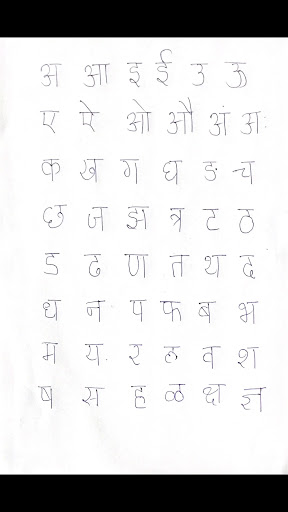 अ आ इ ई उ ऊ
ए ऐ ओ औ अं अः
क ख ग घ ङ च
छ ज झ त्र ट ठ
ड ढ ण त थ द
ध न प फ ब भ
म य र ल व श
ष स ह ळ क्ष ज्ञ